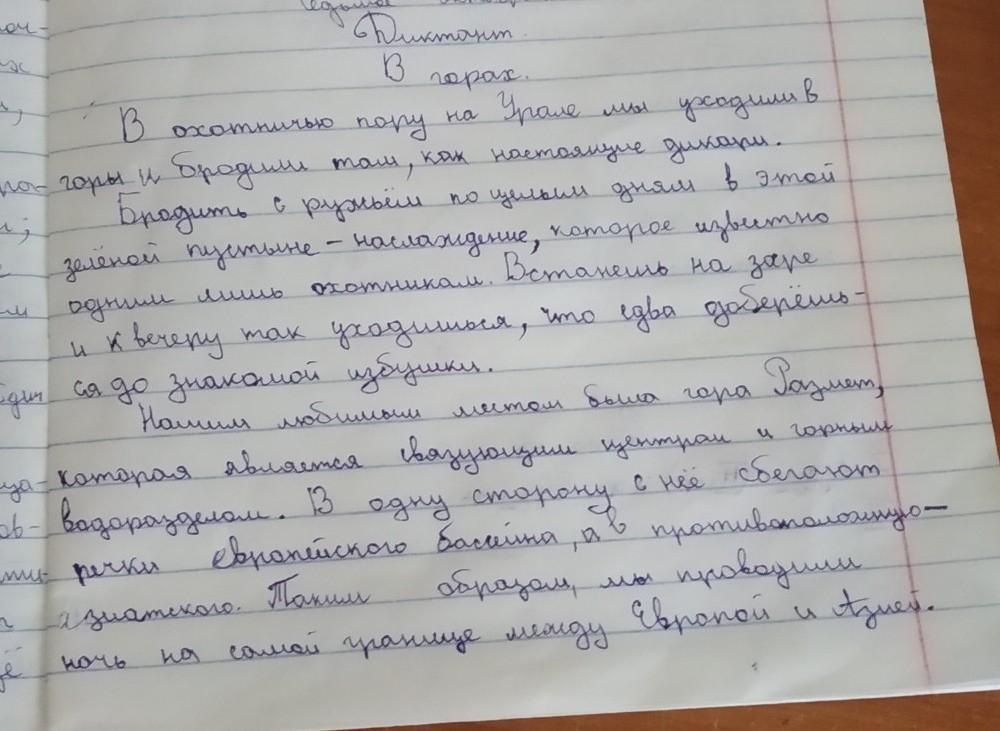 Диктант
В горах.
В охотничью пору на Урале мы уходили в
горы и бродили там, как настоящие дикари.
Бродить с ружьём по целым дням в этой
зелёной пустыне – наслаждение, которое известно
одним лишь охотникам. Встанешь на заре
и к вечеру так уходишься, что едва доберёшь-
ся до знакомой избушки.
Нашим любимым местом была гора Размет,
которая является связующим центром и горным
водоразделом. В одну сторону с неё сбегают
речки европейского басейна, а в противоположную –
азиатского. Таким образом, мы проводили
ночь на самой границе между Европой и Азией.